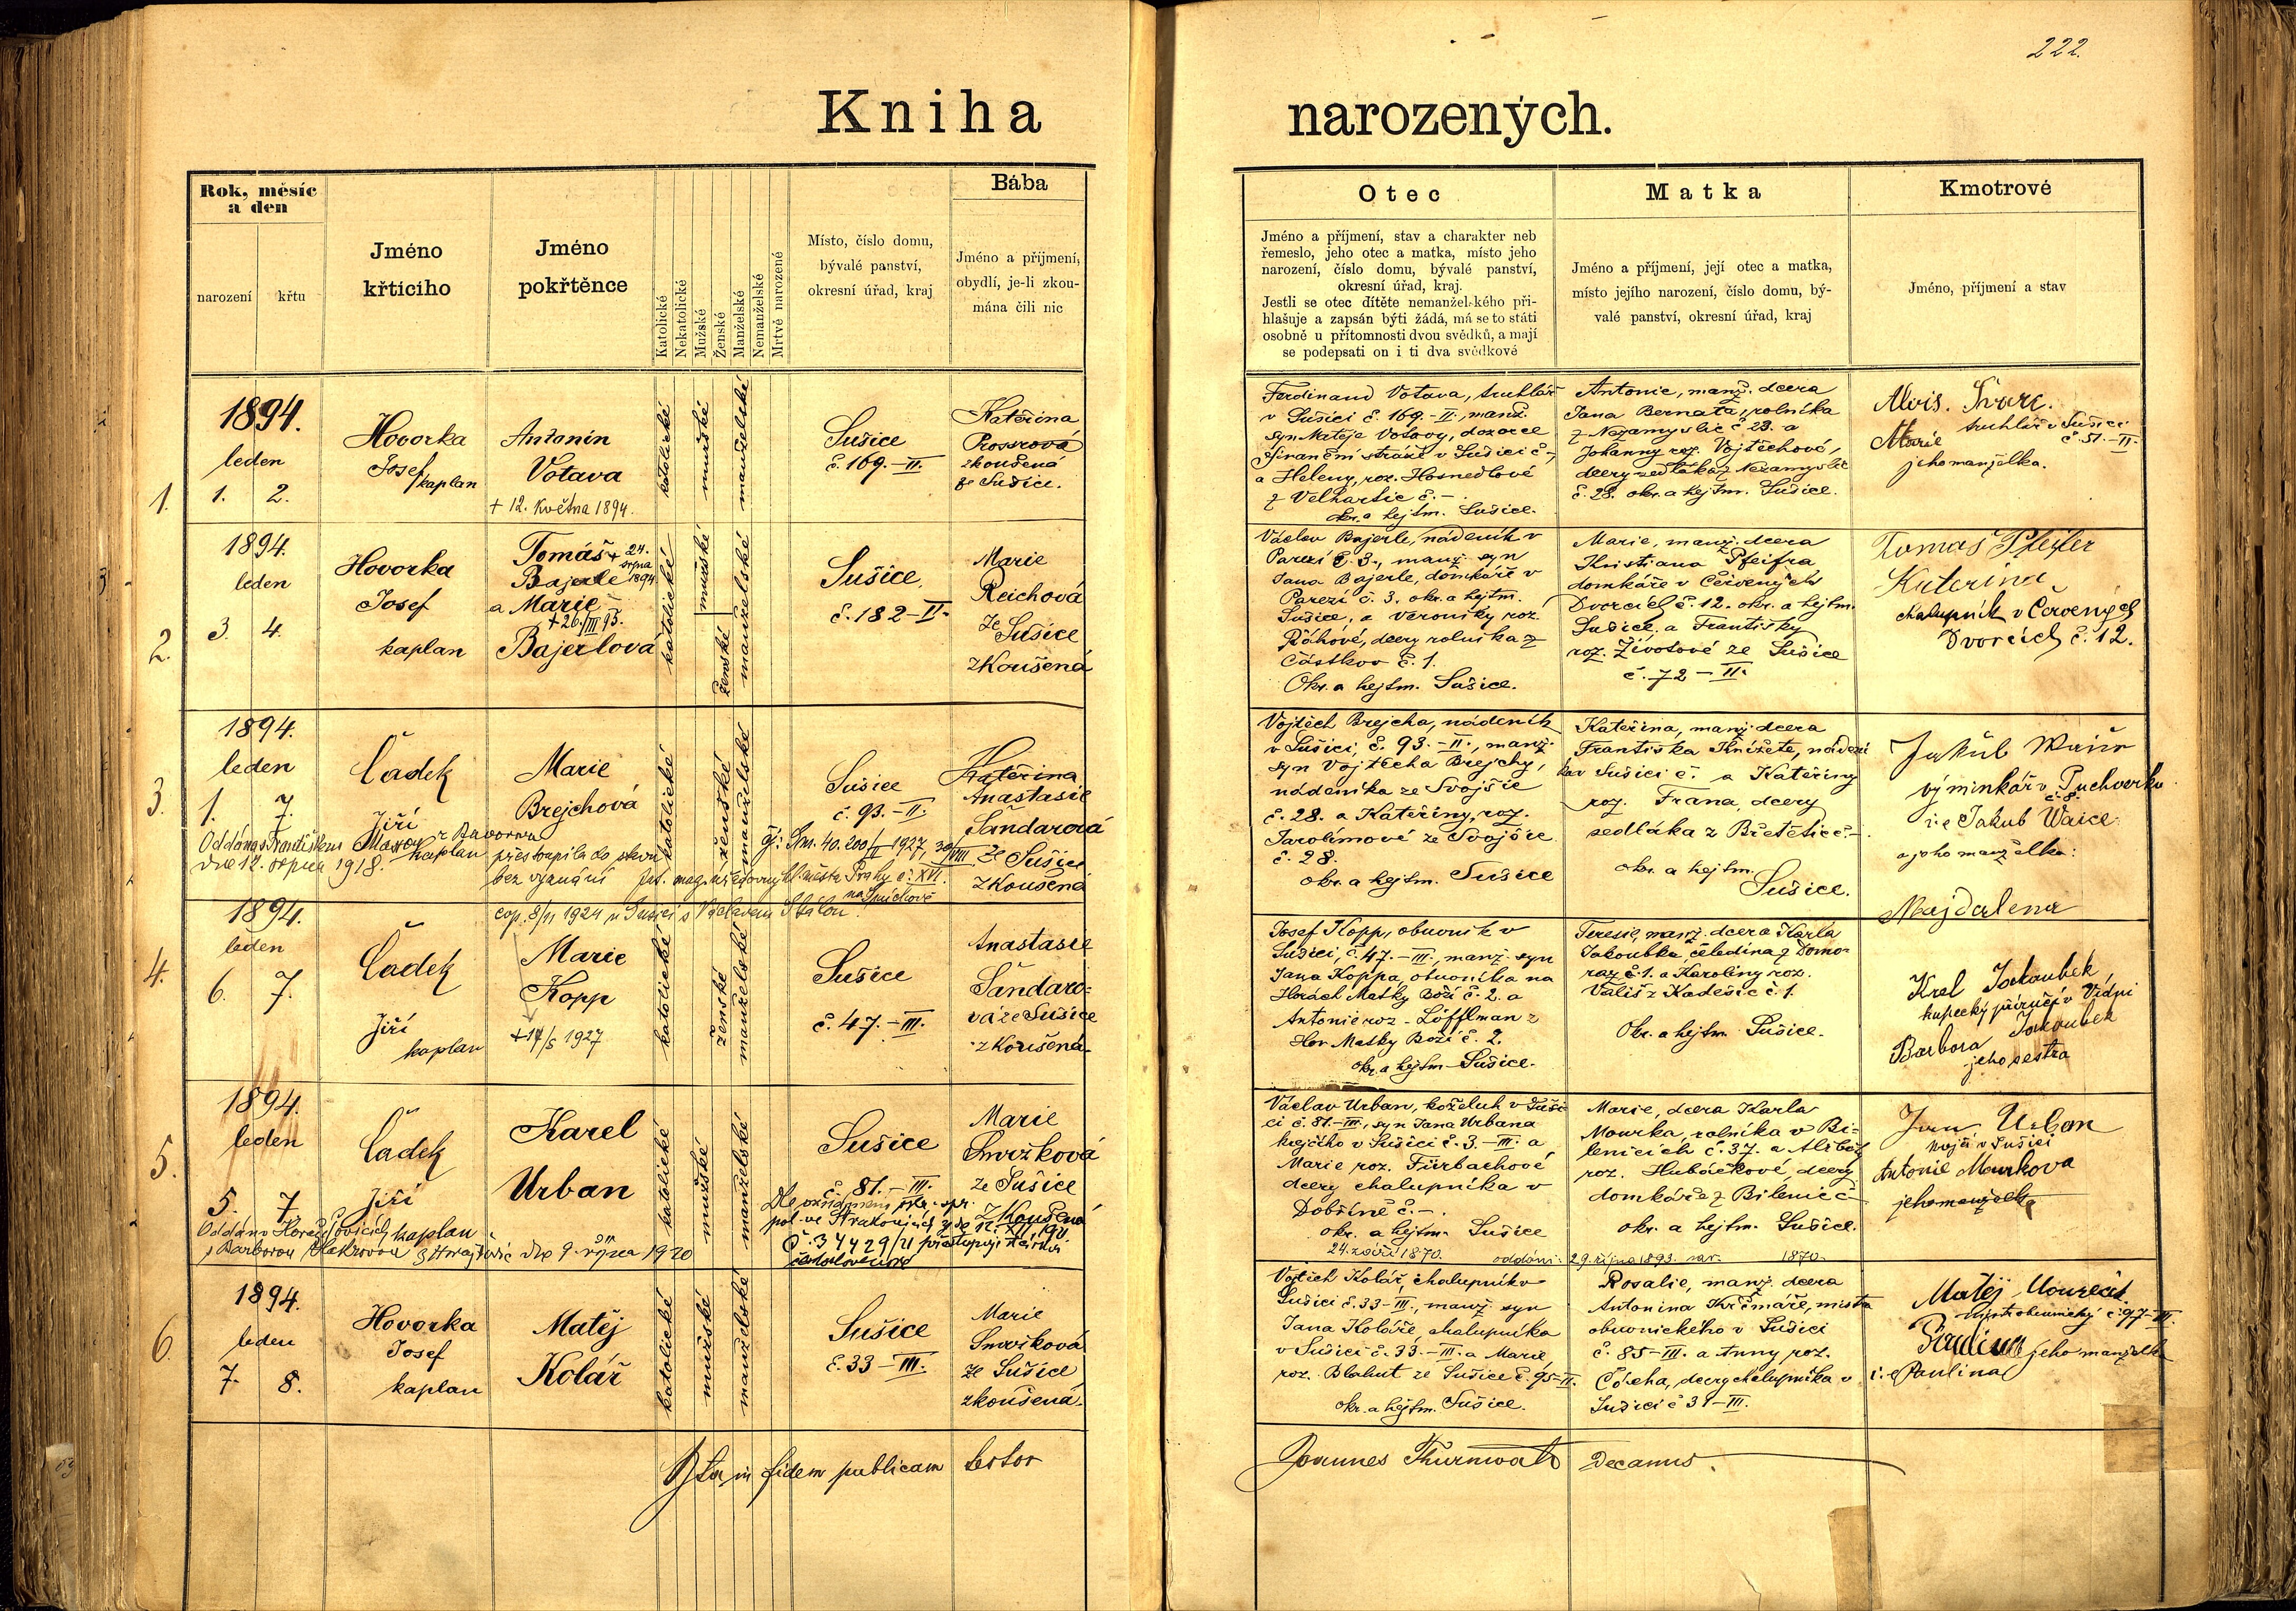 222.
Kniha narozených.
Rok, měsíc
a den
narození
křtu
Jméno
křticího
Jméno
pokřtěnce
Katolické
Nekatolické
Mužské
Ženské
Manželské
Nemanželské
Mrtvě narozené
Místo, číslo domu,
bývalé panství,
okresní úřad, kraj
Bába
Jméno a příjmení,
obydlí, je-li zkou-
mána čili nic
Otec
Jméno a příjmení, stav a charakter neb
řemeslo, jeho otec a matka, místo jeho
narození, číslo domu, bývalé panství,
okresní úřad, kraj.
Jestli se otec dítěte nemanželského při-
hlašuje a zapsán býti žádá, má se to státi
osobně u přítomnosti dvou svědků, a mají
se podepsati on i ti dva svědkové
Matka
Jméno a příjmení, její otec a matka,
místo jejího narození, číslo domu, bý-
valé panství, okresní úřad, kraj
Kmotrové
Jméno, příjmení a stav
1.
1894.
leden
1. 2.
Hovorka
Josef
kaplan
Antonín
Votava
+ 12. května 1894.
katolické
mužské
manželské
Sušice
č. 169.-II.
Kateřina
Prossrová
zkoušená
ze Sušice.
Ferdinand Votava, truhlář
v Sušici č. 169.-II., manž.
syn Matěje Votavy, dozorce
finanční stráže v Sušici č.-,
a Heleny, roz. Hosnedlové
z Velhartic č.-.
okr. a hejtm. Sušice.
Antonie, manž. dcera
Jana Bernata, rolníka
z Nezamyslic č. 23. a
Johanny roz. Vojtěchové,
dcery sedláka z Nezamyslic
č. 28. okr. a hejtm. Sušice.
Alois
truhlář v Sušici
č. 51.-II.
Marie
jeho manželka.
2.
1894.
leden
3. 4.
Hovorka
Josef
kaplan
Tomáš + 24.
srpna
Bajerle 1894
a Marie
+ 26./III 95.
Bajerlová
katolické
mužské
ženské
manželské
Sušice
č. 182-II.
Marie
Reichová
ze
Sušice
zkoušená
Václav Bajerle, nádeník v
Parezí č. 3., manž. syn
Jana Bajerle, domkáře v
Parezí č. 3. okr. a hejtm.
Sušice, a Veroniky roz.
dcery rolníka z
Částkov č. 1.
Okr. a hejtm. Sušice.
Marie, manž. dcera
Kristiana Pfeifra
domkáře v Červených
Dvorcích č. 12. okr. a hejtm.
Sušice, a Františky
roz. Životové ze Sušice
č. 72-II.
Tomáš Pfeifer
Kateřina
chalupník v Červených
Dvorcích č. 12.
3.
1894.
leden
1. 7.
Čadek
Jiří
kaplan
Marie
Brejchová
Oddána s Františkem
dne 12. srpna 1918.
přestoupila do stavu
bez vyznání
katolické
ženské
manželské
Sušice
č. 93.-II.
Kateřina
Anastasie
Šandarová
ze Sušice
zkoušená
Vojtěch Brejcha, nádeník
v Sušici, č. 93.-II., manž.
syn Vojtěcha Brejchy,
nádeníka ze Svojšic
č. 28. a Kateřiny, roz.
Jarolímové ze Svojšic
č. 28.
okr. a hejtm. Sušice
Kateřina, manž. dcera
Františka Knížete, nádení
ka v Sušici č. a Kateřiny
roz. Frana, dcery
sedláka z Břetětic č.-.
okr. a hejtm.
Sušice.
Jakub
výminkář v Puchverku
č. 8.
i.e Jakub Waice
a jeho manželka:
Majdalena
4.
1894.
leden
6. 7.
Čadek
Jiří
kaplan
cop. 8/11 1924 v Sušici s Václavem
Marie
Kopp
+ 14/5 1927
katolické
ženské
manželské
Sušice
č. 47.-III.
Anastasie
Šandaro-
vá ze Sušice
zkoušená.
Josef Kopp, obuvník v
Sušici, č. 47.-III., manž. syn
Jana Koppa, obuvníka na
Horách Matky Boží č. 2. a
Antonie roz. Löfflman z
Hor Matky Boží č. 2.
okr. a hejtm. Sušice.
Teresie, manž. dcera Karla
Jakoubka, čeledína z Domo-
raz č. 1. a Karoliny roz.
Vališ z Kadešic č. 1.
Okr. a hejtm. Sušice.
Karel Jakoubek,
kupecký příručí v Vídni
Barbora Jakoubek
jeho sestra
5.
1894.
leden
5. 7.
Čadek
Jiří
kaplan
Karel
Urban
dne 9. října 1920
katolické
mužské
manželské
Sušice
č. 81.-III.
Marie
Smržková
ze Sušice
zkoušená
Václav Urban, koželuh v Suši-
ci č. 81.-III., syn Jana Urbana
krejčího v Sušici č. 3-III. a
Marie roz. Fürbachové
dcery chalupníka v
Dobříně č.-.
okr. a hejtm. Sušice
24. září 1870.
oddáni: 29. října 1893. nar. 1870.
Marie, dcera Karla
Mourka, rolníka v Bi-
lenicích č. 37. a Alžběty
roz. Hubáčkové, dcery
domkáře z Bilenic č.-
okr. a hejtm. Sušice.
Jan Urban
krejčí v Sušici
Antonie Mourkova
jeho manželka
6.
1894.
leden
7. 8.
Hovorka
Josef
kaplan
Matěj
Kolář
katolické
mužské
manželské
Sušice
č. 33-III.
Marie
Smržková
ze Sušice
zkoušená.
Vojtěch Kolář, chalupník v
Sušici č. 33-III., manž. syn
Jana Koláře, chalupníka
v Sušici č. 33.-III. a Marie
roz. Blahut ze Sušice č. 95-II.
okr. a hejtm. Sušice.
Rosalie, manž. dcera
Antonína Krčmáře, mistra
obuvnického v Sušici
č. 85-III. a Anny roz.
dcery chalupníka v
Sušici č. 31-III.
Matěj Mourek
mistr obuvnický č. 97-III.
jeho manželka
i.e Paulina
Ita in fidem publicam testor
Joannes Thurnwald Decanus.